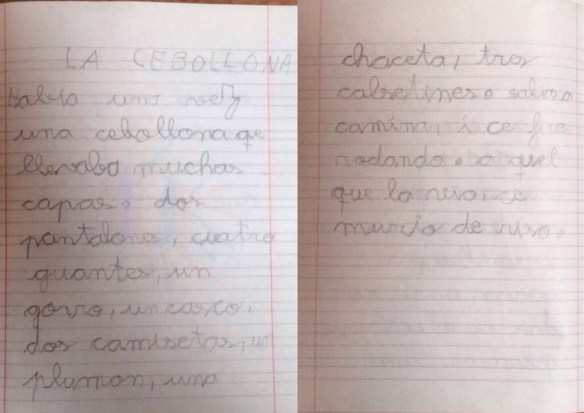 LA CEBOLLONA
Habia una vez
una cebollona qe
llevaba muchas
capas. dos
pantalones, cuatro
guantes, un
gorro, un casco,
dos camisetas, un
plumon, una
chaceta, tros
calsetines. salio a
camina, i ce fue
rodando. a quel
que la veia, ce
murcio de risa.